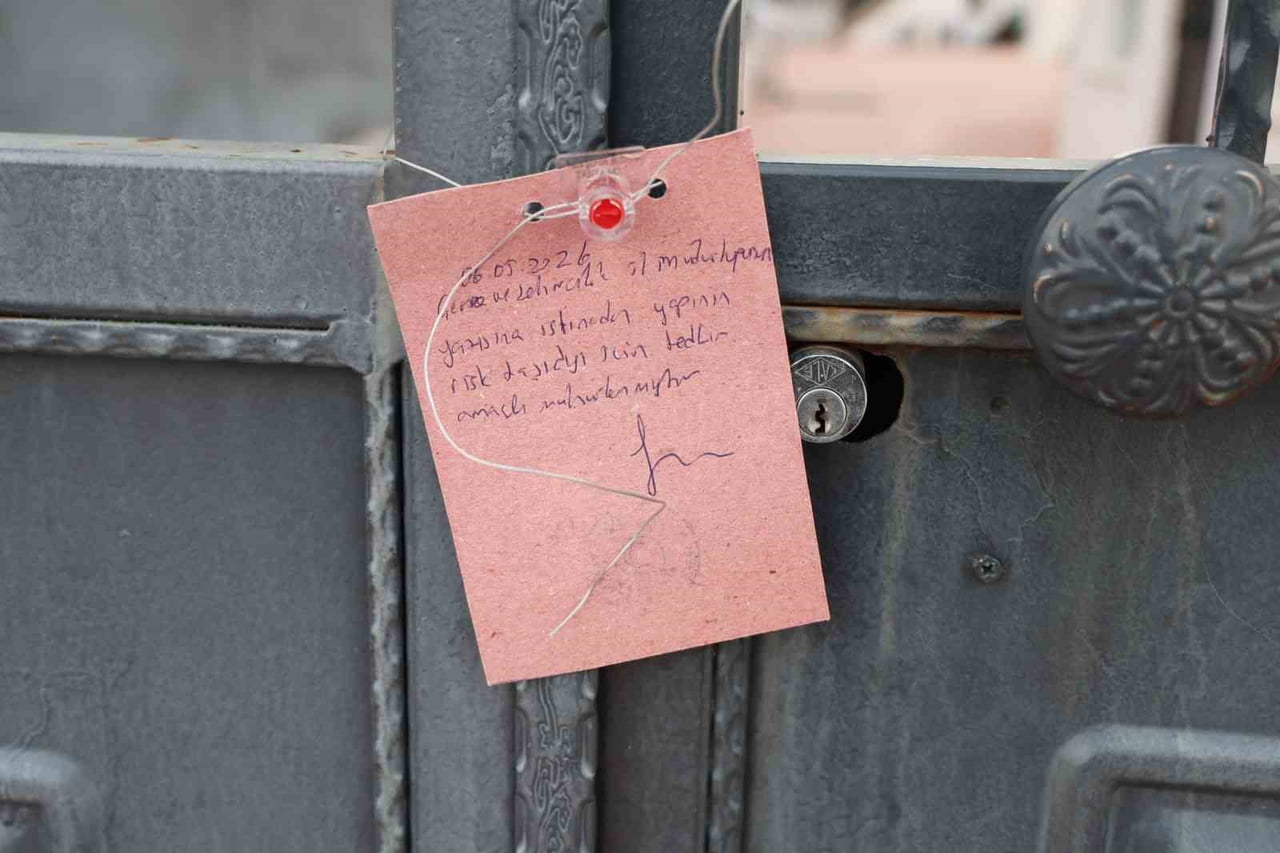 06.05.2026
Çevre ve şehircilik il müdürlüğünün
yazısına istinaden yapının
risk taşıdığı için tedbir
amaçlı mühürlenmiştir